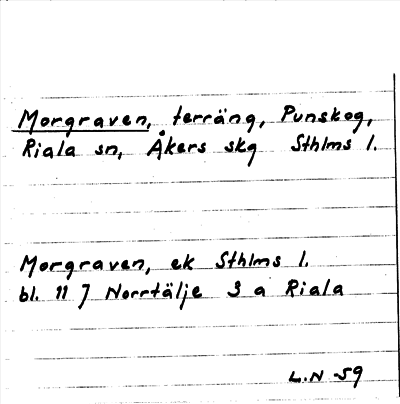 Morgraven, terräng, Punskog,
Riala sn, Åkers skg Sthlms l.
Morgraven, ek Sthlms l.
bl. 11 J Norrtälje 3 a Riala
L.N 59